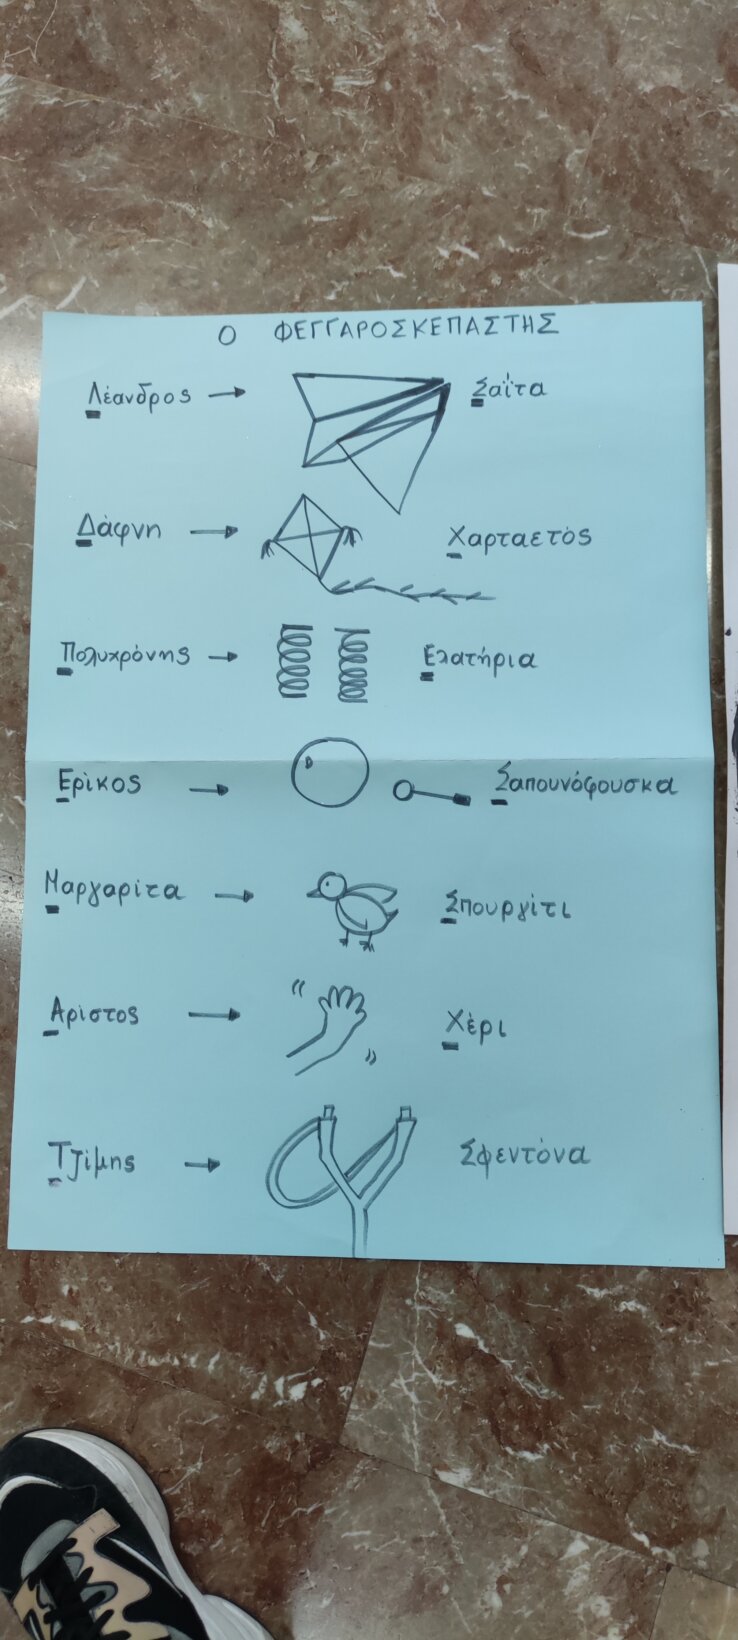 Ο ΦΕΓΓΑΡΟΣΚΕΠΑΣΤΗΣ
Λέανδρος → Σαΐτα
Δάφνη → Χαρταετός
Πολυχρόνης → Ελατήρια
Ερίκος → Σαπουνόφουσκα
Μαργαρίτα → Σπουργίτι
Αρίστος → Χέρι
Τζίμης → Σφεντόνα